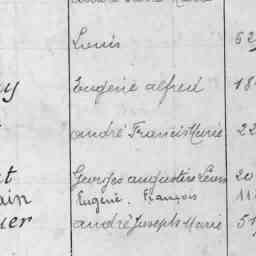 Louis 62
y Eugène alfred 18
andré Francis Marie 22
t Georges augustin Léon 20
ain Eugène François 11
uer andré Joseph Marie 51